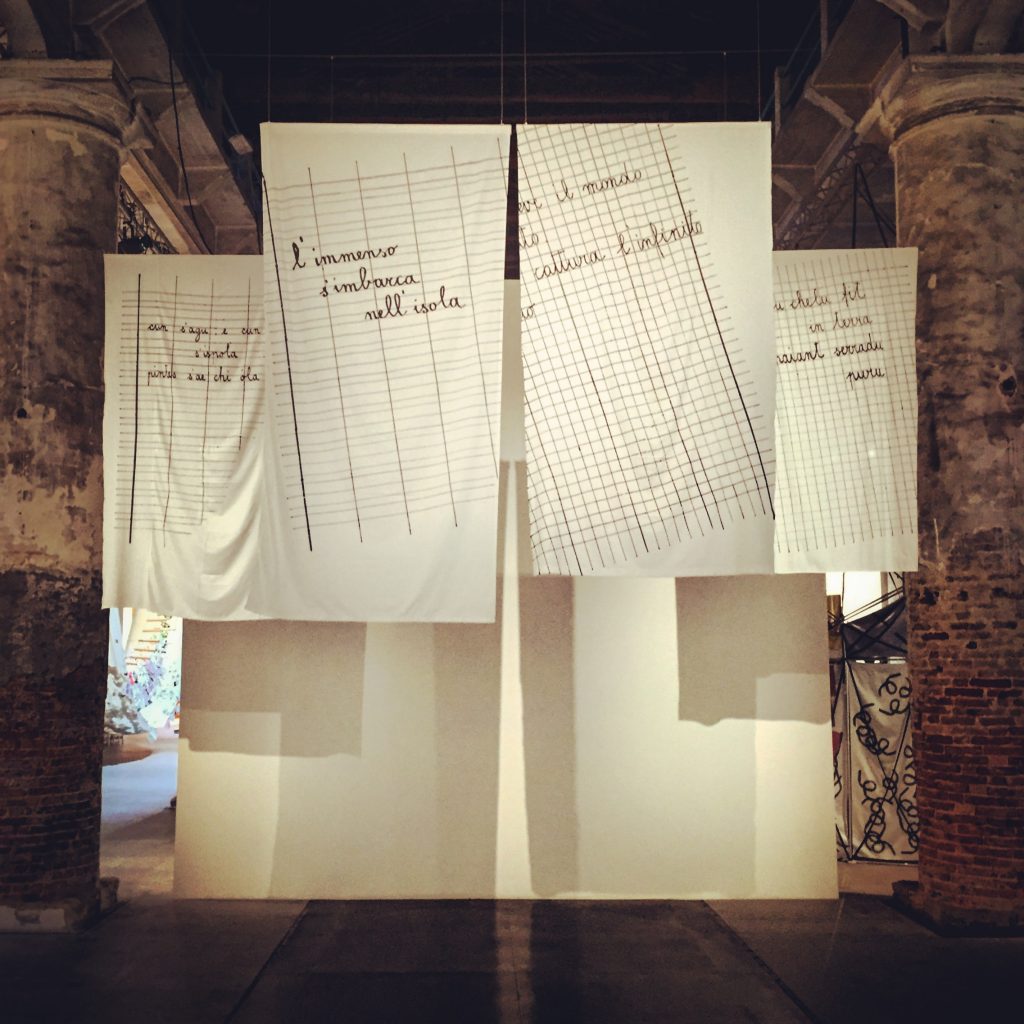 cun s'agu: e cun
s'ispola
pintas sae chi ola
l'immenso
s'imbarca
nell'isola
il mondo
cattura l'infinito
chelu fit
in terra
serradu
puru